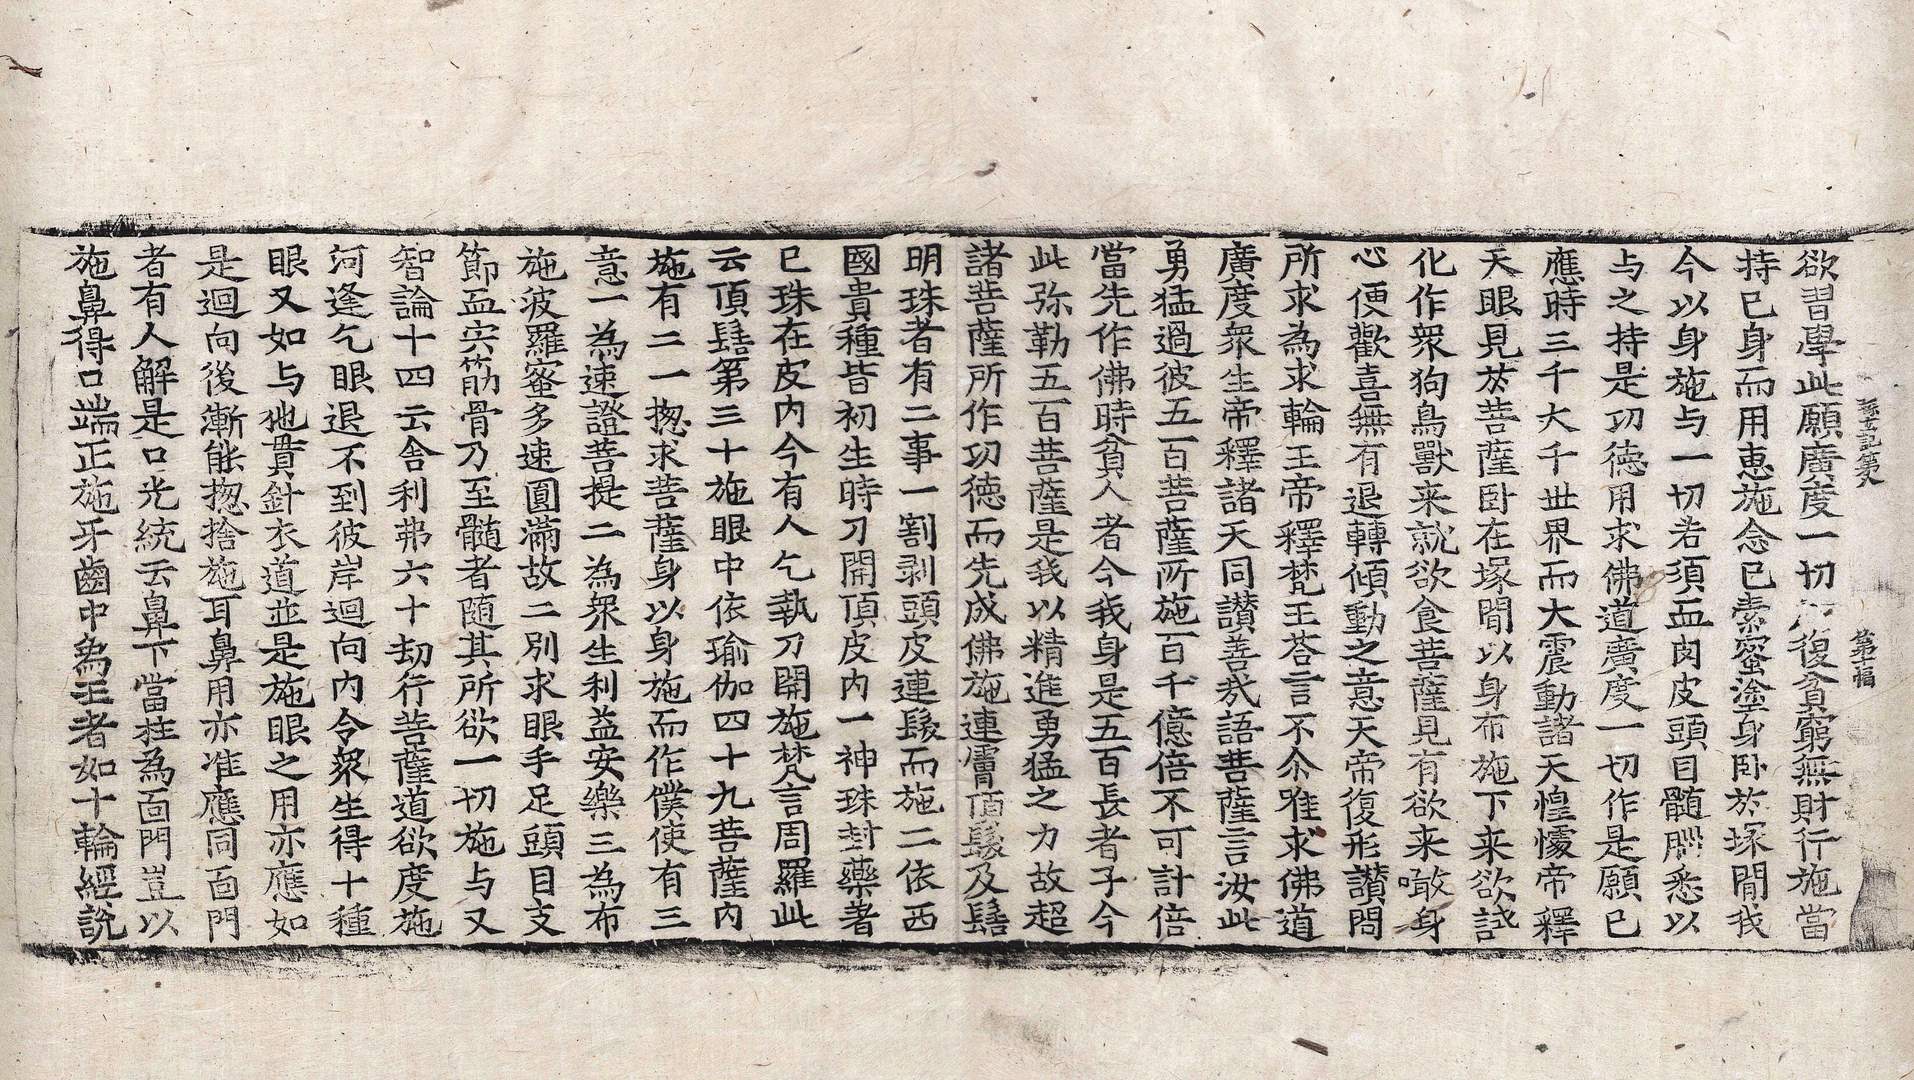 疏玄記第六
第十幅
欲習學此願廣度一切復貧窮無財行施當
持已身而用惠施念已索蜜塗身卧於塚間我
今以身施与一切若須血肉皮頭目髓𦛁悉以
与之持是功德用求佛道廣度一切作是願已
應時三千大千世界而大震動諸天惶懅帝釋
天眼見於菩薩卧在塚間以身布施下来欲試
化作衆狗鳥獸来就欲食菩薩見有欲来噉身
心便歡喜無有退轉傾動之意天帝復形讃問
所求為求輪王帝釋梵王荅言不尒唯求佛道
廣度衆生帝釋諸天同讃善㢤語菩薩言汝此
勇猛過彼五百菩薩所施百千億倍不可計倍
當先作佛時貧人者今我身是五百長者子今
此弥勒五百菩薩是我以精進勇猛之力故超
諸菩薩所作功德而先成佛施連膚頂髮及髻
明珠者有二事一割剥頭皮連髮而施二依西
國貴種皆初生時刀開頂皮内一神珠封藥著
已珠在皮内今有人乞執刀開施梵言周羅此
云頂髻第三十施眼中依瑜伽四十九菩薩内
施有二一惣求菩薩身以身施而作僕使有三
意一為速證菩提二為衆生利益安樂三為布
施波羅蜜多速圓滿故二別求眼手足頭目支
節血宍筋骨乃至髓者随其所欲一切施与又
智論十四云舍利弗六十劫行菩薩道欲度施
河逢乞眼退不到彼岸迴向内令衆生得十種
眼又如与他貫針衣道並是施眼之用亦應如
是迴向後漸能惣捨施耳鼻用亦准應同面門
者有人解是口光統云鼻下當柱為面門豈以
施鼻得口端正施牙齒中為王者如十輪經説